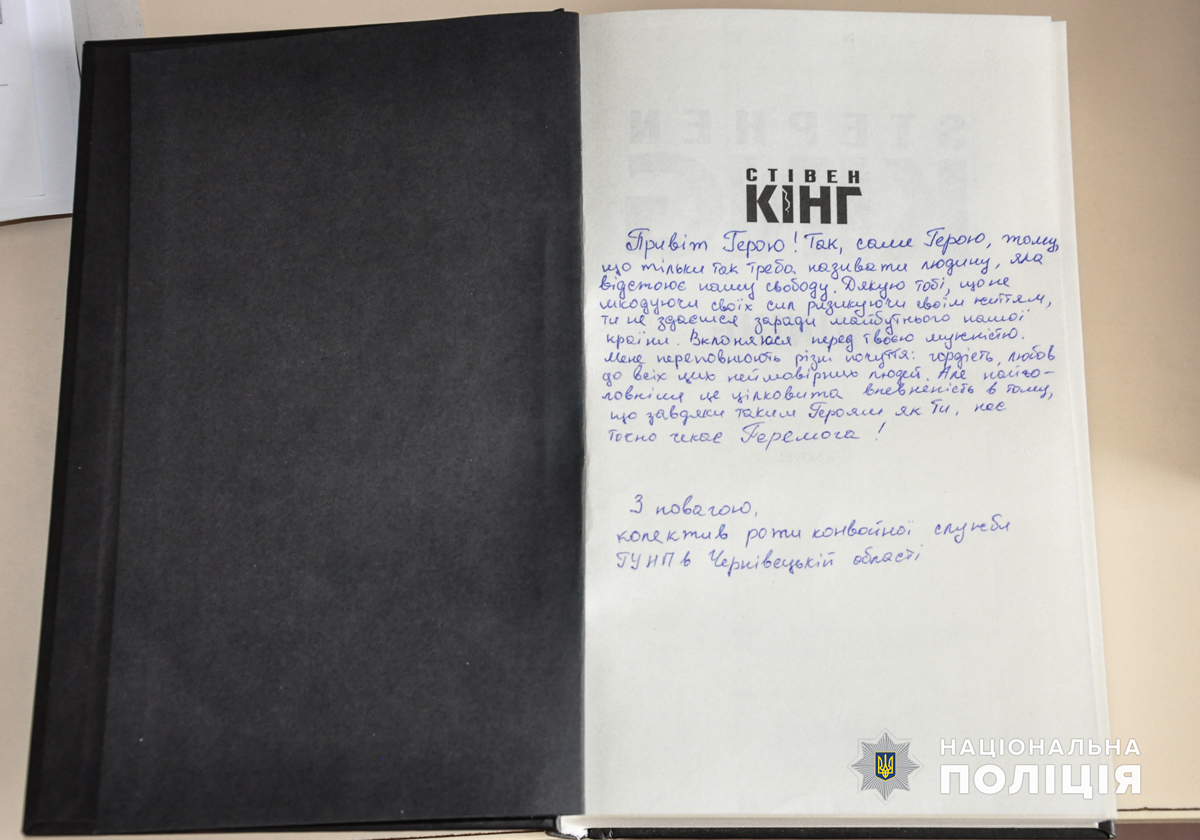 СТІВЕН
КІНГ
Привіт Герою! Так, саме Герою, тому,
що тільки так треба називати людину, яка
відстоює нашу свободу. Дякую тобі, що не
шкодуючи своїх сил ризикуючи своїм життям,
ти не здаєшся заради майбутнього нашої
країни. Вклоняюся перед твоєю мужністю.
Мене переповнюють різні почуття: гордість, любов
до всіх цих неймовірних людей. Але найго-
ловніше це цілковита впевненість в тому,
що завдяки таким Героям як Ти, нас
точно чекає Перемога!
З повагою,
колектив роти конвойної служби
ГУНП в Чернівецькій області
STEPHEN
KING
НАЦІОНАЛЬНА
ПОЛІЦІЯ